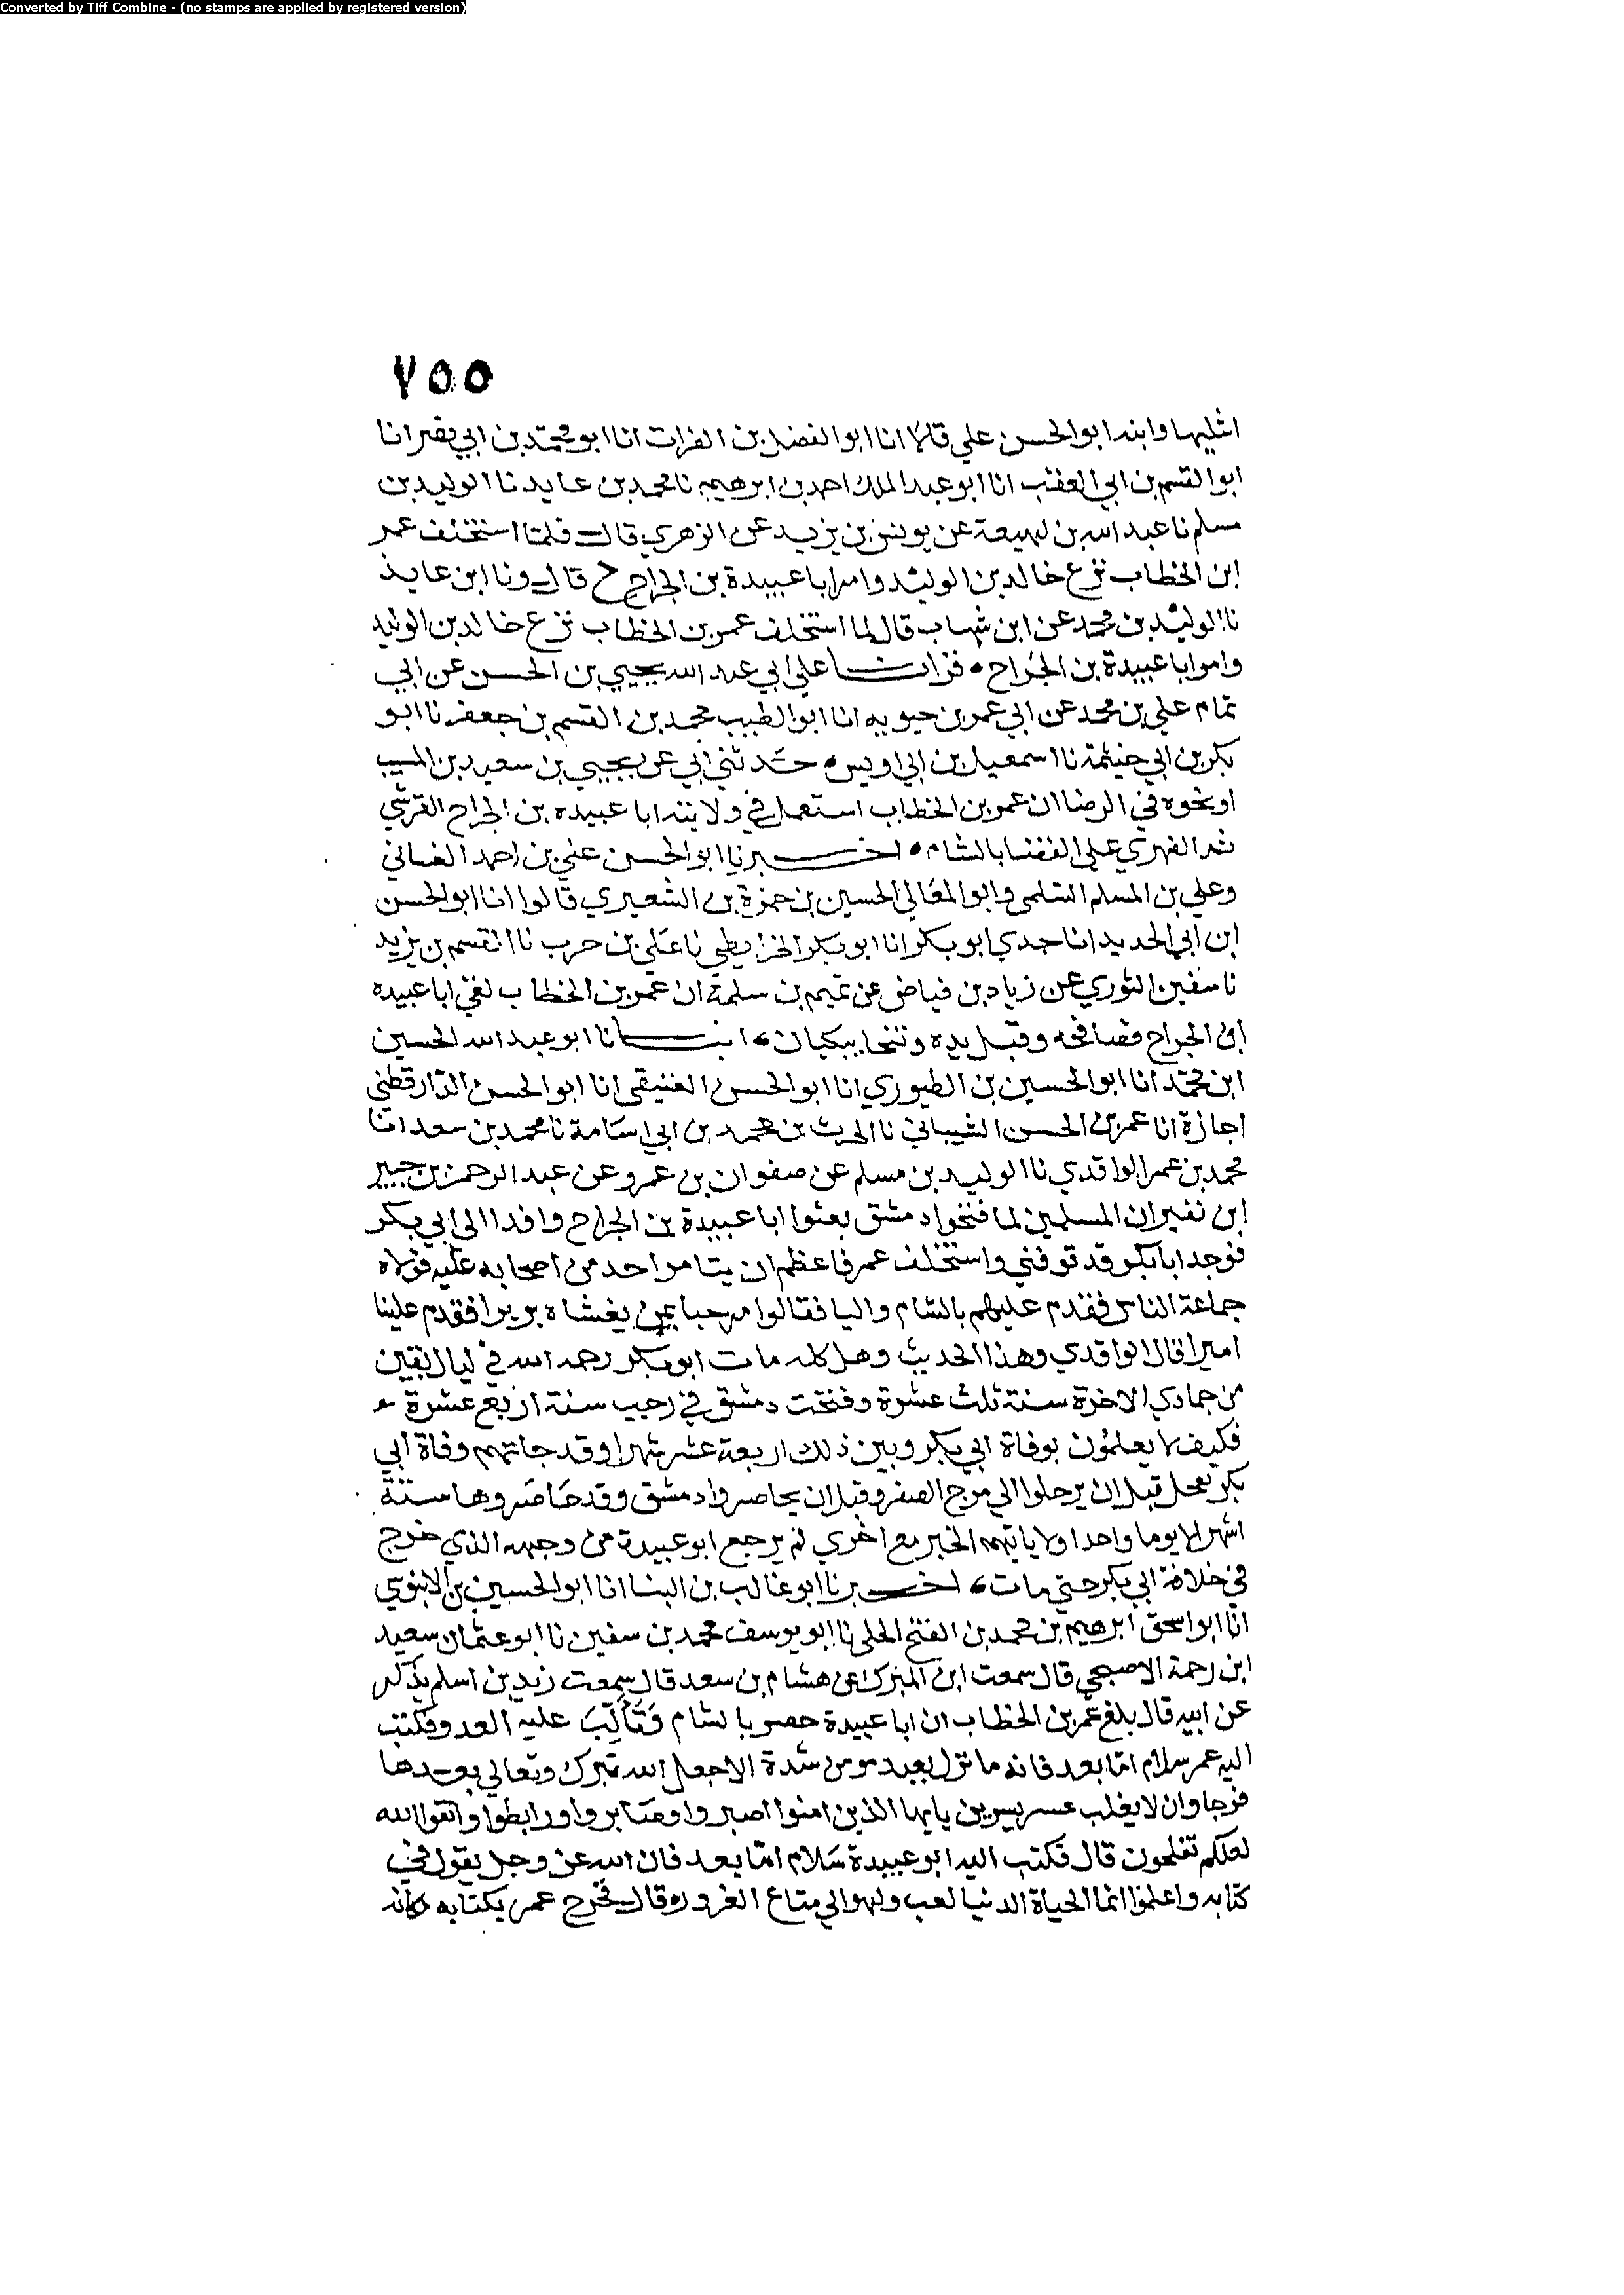 Converted by Tiff Combine - (no stamps are applied by registered version)
٧٥٥
اثليها وابنه ابو الحسن علي قالا انا ابو الفضل بن الفرات انا ابو محمد بن ابي نصر انا
ابو القسم بن ابي العقب انا ابو عبد الملك احمد بن ابرهيم نا محمد بن عايد نا الوليد بن
مسلم نا عبد الله بن لهيعة عن يونس بن يزيد عن الزهري قال فلما استخلف عمر
ابن الخطاب نزع خالد بن الوليد وامر ابا عبيدة بن الجراح ح قال ونا ابن عايذ
نا الوليد بن محمد عن ابن شهاب قال لما استخلف عمر بن الخطاب نزع خالد بن الوليد
وامر ابا عبيدة بن الجراح قرات على ابي عبد الله يحيي بن الحسن عن ابي
تمام علي بن محمد عن ابي عمر بن حيويه انا ابو الطيب محمد بن القسم بن جعفر نا ابو
بكر بن ابي خيثمة نا اسمعيل بن ابي اويس حدثني ابي عن يحيي بن سعيد بن المسيب
او نحوه في الرضا ان عمر بن الخطاب استعمل في ولايته ابا عبيده بن الجراح القرشي
ثم الفهري علي القضا بالشام اخبرنا ابو الحسن علي بن احمد الغساني
وعلي بن المسلم السلمي وابو المعالي الحسين بن حمزة بن الشعيري قالوا انا ابو الحسن
ابن ابي الحديد انا جدي ابو بكر انا ابو بكر الخرايطي نا علي بن حرب نا القسم بن يزيد
نا سفين الثوري عن زياد بن فياض عن تميم بن سلمة ان عمر بن الخطاب لقي ابا عبيده
ابن الجراح فصافحه وقبل يده وتنحا يبكيان انبانا ابو عبد الله الحسين
ابن محمد انا ابو الحسين بن الطيوري انا ابو الحسن العتيقي انا ابو الحسن الدارقطني
اجازة انا عمر بن الحسن الشيباني نا الحرث بن محمد بن ابي اسامة نا محمد بن سعد انا
محمد بن عمر الواقدي نا الوليد بن مسلم عن صفوان بن عمرو عن عبد الرحمن بن جبير
ابن نفير ان المسلمين لما فتحوا دمشق بعثوا ابا عبيدة بن الجراح وافدا الي ابي بكر
فوجد ابا بكر قد توفي واستخلف عمر فاعظم ان يتامر احد من اصحابه عليه فولاه
جماعة الناس فقدم عليهم بالشام واليا فقالوا مرحبا بمن بغشاه بريرا فقدم علينا
اميرا قال الواقدي وهذا الحديث وهل كله مات ابو بكر رحمه الله في ليال بقين
من جمادي الاخرة سنة ثلث عشرة وفتحت دمشق في رجب سنة اربع عشرة
فكيف لا يعلمون بوفاة ابي بكر وبين ذلك اربعة عشر شهرا وقد جاتهم وفاة ابي
بكر بفحل قبل ان يرحلوا الي مرج الصفر وقبل ان يحاصروا دمشق وقد حاصروها ستة
اشهر الا يوما واحدا ولا ياتيهم الخبر مع اخري لم يرجع ابو عبيدة من وجهه الذي خرج
في خلافة ابي بكر حتي مات اخبرنا ابو غالب بن البنا انا ابو الحسين بن الابنوسي
انا ابو اسحق ابرهيم بن محمد بن الفتح الجلي نا ابو يوسف محمد بن سفين نا ابو عثمان سعيد
ابن رحمة الاصبحي قال سمعت ابن المبرك عن هشام بن سعد قال سمعت زيد بن اسلم يذكر
عن ابيه قال بلغ عمر بن الخطاب ان ابا عبيدة حصر بالشام وتالب عليه العدو فكتب
اليه عمر سلام اما بعد فانه ما نزل بعبد مومن شدة الا جعل الله تبرك وتعالي بعدها
فرجا وان لا يغلب عسر يسرين يايها الذين امنوا اصبروا وصابروا ورابطوا واتقوا الله
لعلكم تفلحون قال فكتب اليه ابو عبيدة سلام اما بعد فان الله عز وجل يقول في
كتابه واعلموا انما الحياة الدنيا لعب ولهو الي متاع الغرور قال فخرج عمر بكتابه مكانه